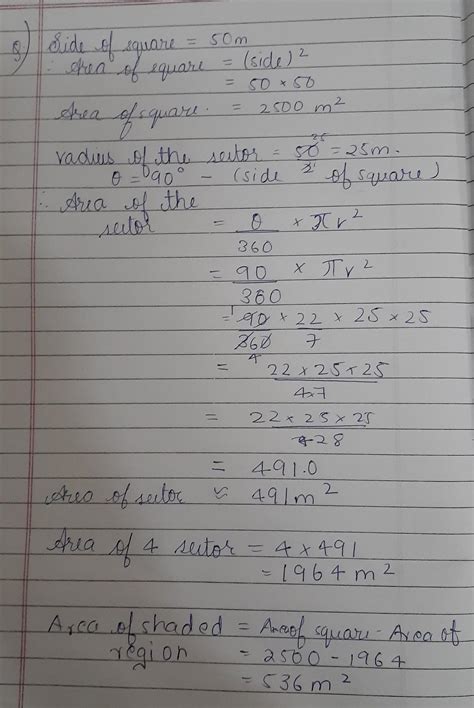 Q) Side of square = 50m
∴ Area of square = (side)²
= 50 × 50
Area of square = 2500 m²
radius of the sector = 50/2 = 25m.
θ = 90° - (side of square)
∴ Area of the
sector = θ/360 × πr²
= 90/360 × πr²
= 90/360 × 22/7 × 25 × 25
= 22 × 25 × 25/4.7
= 22 × 25 × 25/28
= 491.0
Area of sector ≈ 491m²
Area of 4 sector = 4 × 491
= 1964 m²
Area of shaded = Area of square - Area of
region = 2500 - 1964
= 536 m²